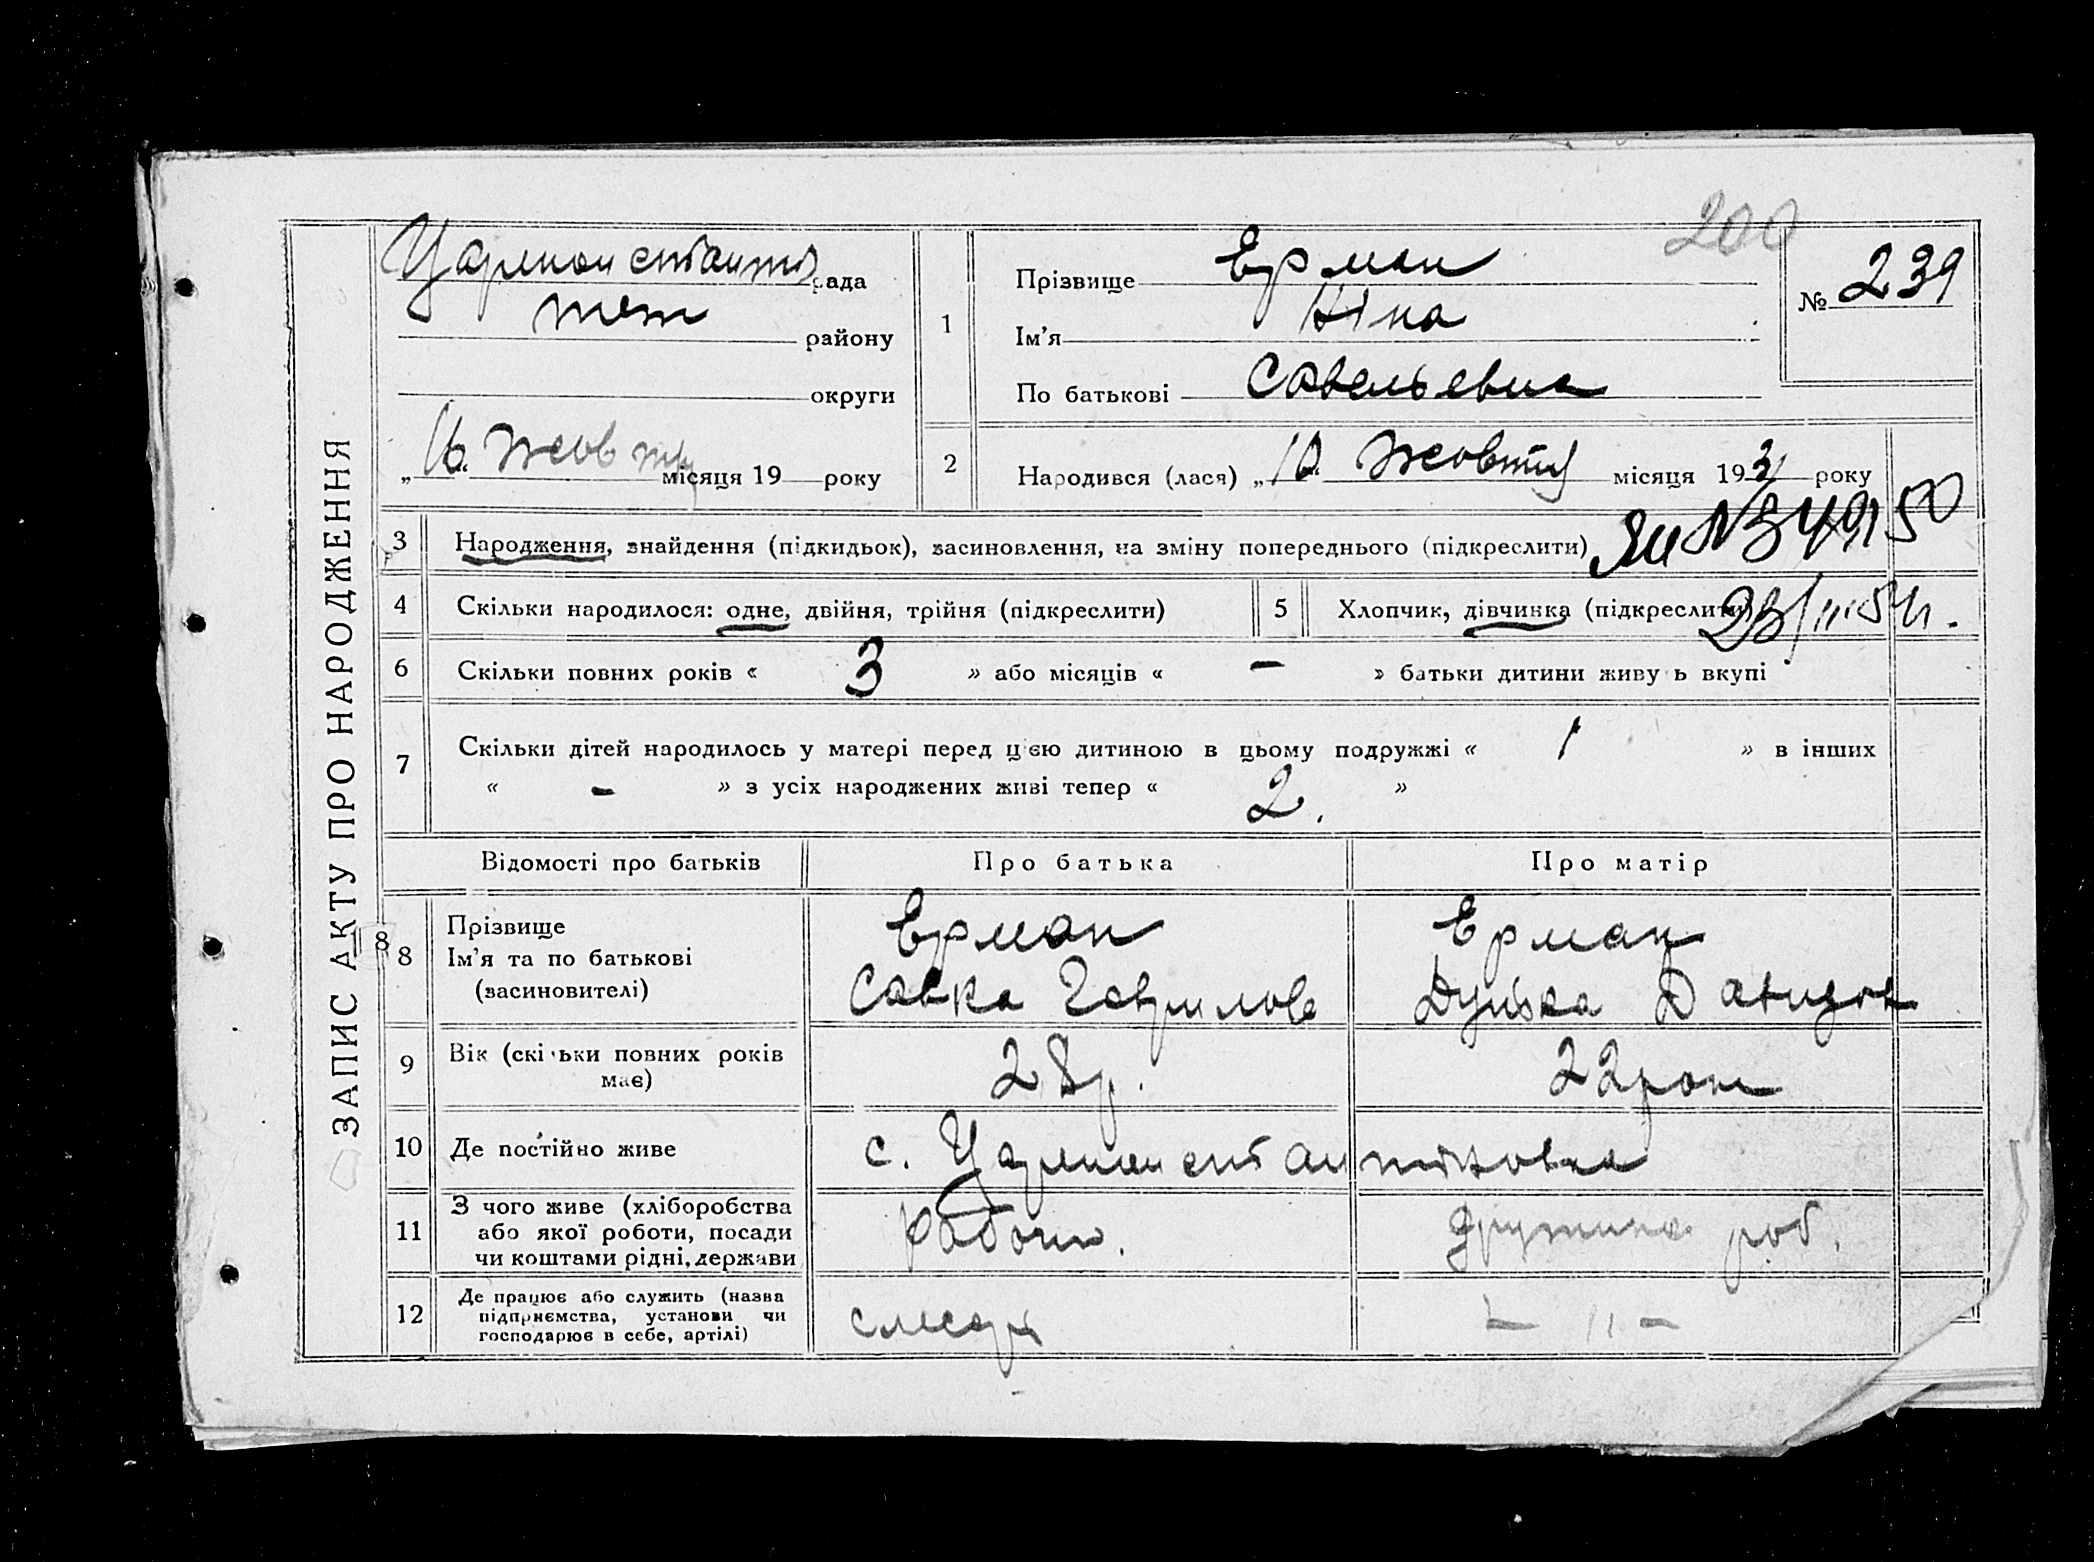 ЗАПИС АКТУ ПРО НАРОДЖЕННЯ
200
рада
району
округи
„16“ Жовтня місяця 19 року
1
Прізвище Ерман
Ім'я Ніна
По батькові Савельевна
№ 239
2
Народився (лася) „10“ Жовтня місяця 193 року
3
Народження, знайдення (підкидьок), засиновлення, на зміну попереднього (підкреслити)
4
Скільки народилося: одне, двійня, трійня (підкреслити)
5
Хлопчик, дівчинка (підкреслити)
6
Скільки повних років « 3 » або місяців « – » батьки дитини живуть вкупі
7
Скільки дітей народилось у матері перед цією дитиною в цьому подружжі « 1 » в інших
« – » з усіх народжених живі тепер « 2. »
Відомості про батьків
Про батька
Про матір
8
Прізвище
Ім'я та по батькові
(засиновителі)
Ерман
Савка Гаврилов
Ерман
Дунька Давидов
9
Вік (скільки повних років
має)
28 р.
22 рок
10
Де постійно живе
с. Царьконстантиновка
11
З чого живе (хліборобства
або якої роботи, посади
чи коштами рідні, держави
рабочи.
дружина роб.
12
Де працює або служить (назва
підприємства, установи чи
господарює в себе, артілі)
– 〃 –